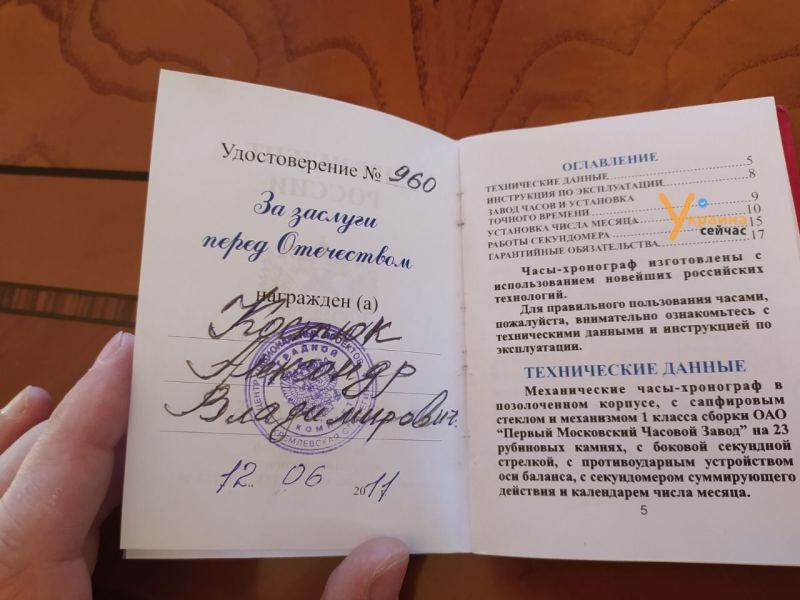 Удостоверение № 960
За заслуги
перед Отечеством
награжден (а)
Костюк
Александр
Владимирович
12 06 2011
ОГЛАВЛЕНИЕ
ТЕХНИЧЕСКИЕ ДАННЫЕ 5
ИНСТРУКЦИЯ ПО ЭКСПЛУАТАЦИИ 8
ЗАВОД ЧАСОВ И УСТАНОВКА
ТОЧНОГО ВРЕМЕНИ 9
УСТАНОВКА ЧИСЛА МЕСЯЦА 10
РАБОТЫ СЕКУНДОМЕРА 15
ГАРАНТИЙНЫЕ ОБЯЗАТЕЛЬСТВА 17
Украина
сейчас
Часы-хронограф изготовлены с
использованием новейших российских
технологий.
Для правильного пользования часами,
пожалуйста, внимательно ознакомьтесь с
техническими данными и инструкцией по
эксплуатации.
ТЕХНИЧЕСКИЕ ДАННЫЕ
Механические часы-хронограф в
позолоченном корпусе, с сапфировым
стеклом и механизмом 1 класса сборки ОАО
“Первый Московский Часовой Завод” на 23
рубиновых камнях, с боковой секундной
стрелкой, с противоударным устройством
оси баланса, с секундомером суммирующего
действия и календарем числа месяца.
5